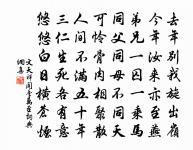 去年別我旋出嶺
今年汝來亦至燕
弟兄一囚一乘馬
同父同母不同天
可憐骨肉相聚散
人間不滿五十年
三仁生死各有意
悠悠白日橫蒼煙
文天祥聞季萬至詞典
網集